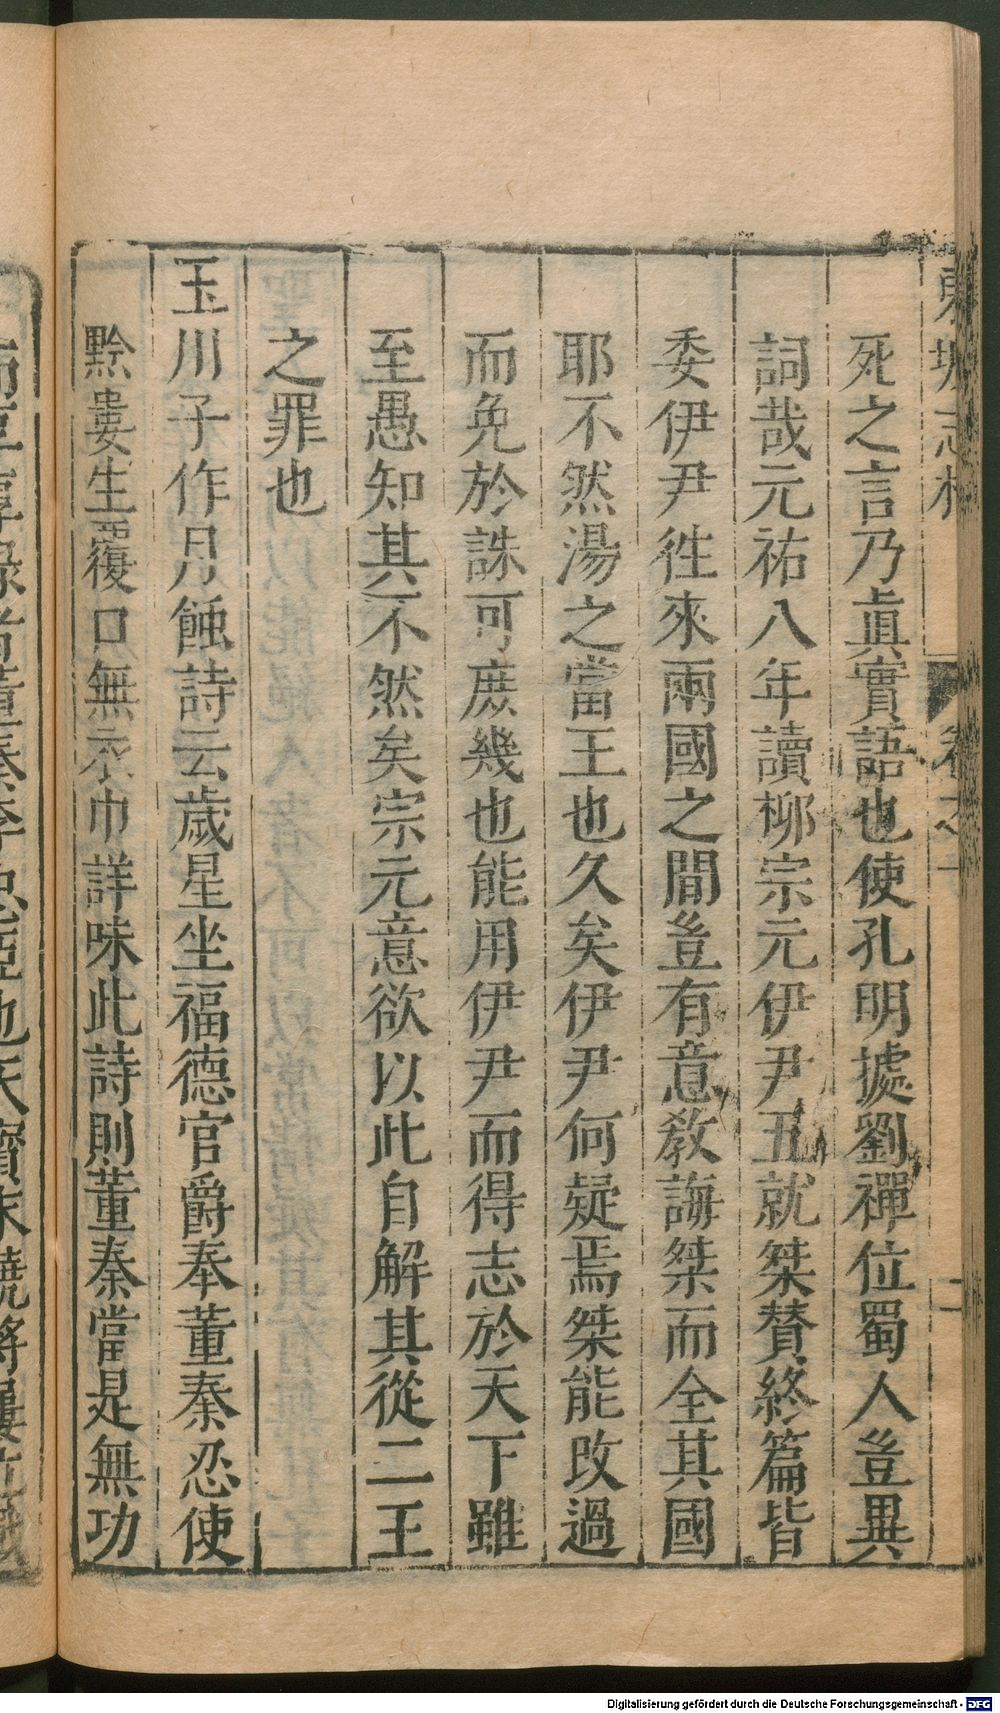 死之言乃眞實語也使孔明據劉禪位蜀人豈異
詞哉元祐八年讀柳宗元伊尹五就桀賛終篇皆
委伊尹徃來兩國之間豈有意敎誨桀而全其國
耶不然湯之當王也久矣伊尹何疑焉桀能改過
而免於誅可庶幾也能用伊尹而得志於天下雖
至愚知其不然矣宗元意欲以此自解其從二王
之罪也
玉川子作月蝕詩云歲星坐福德官爵奉董秦忍使
黔婁生覆口無衣巾詳味此詩則董秦當是無功
Digitalisierung gefördert durch die Deutsche Forschungsgemeinschaft - DFG